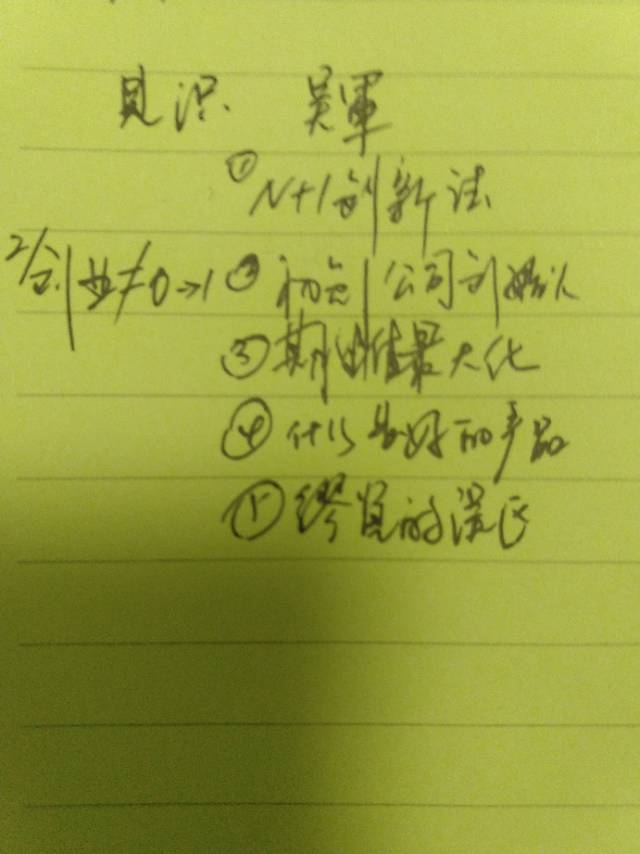 见识 吴軍
① N+1创新法
2/创业≠0→1 ② 初创公司
③ 期望值最大化
④ 什么是好的产品
⑤ 的误区